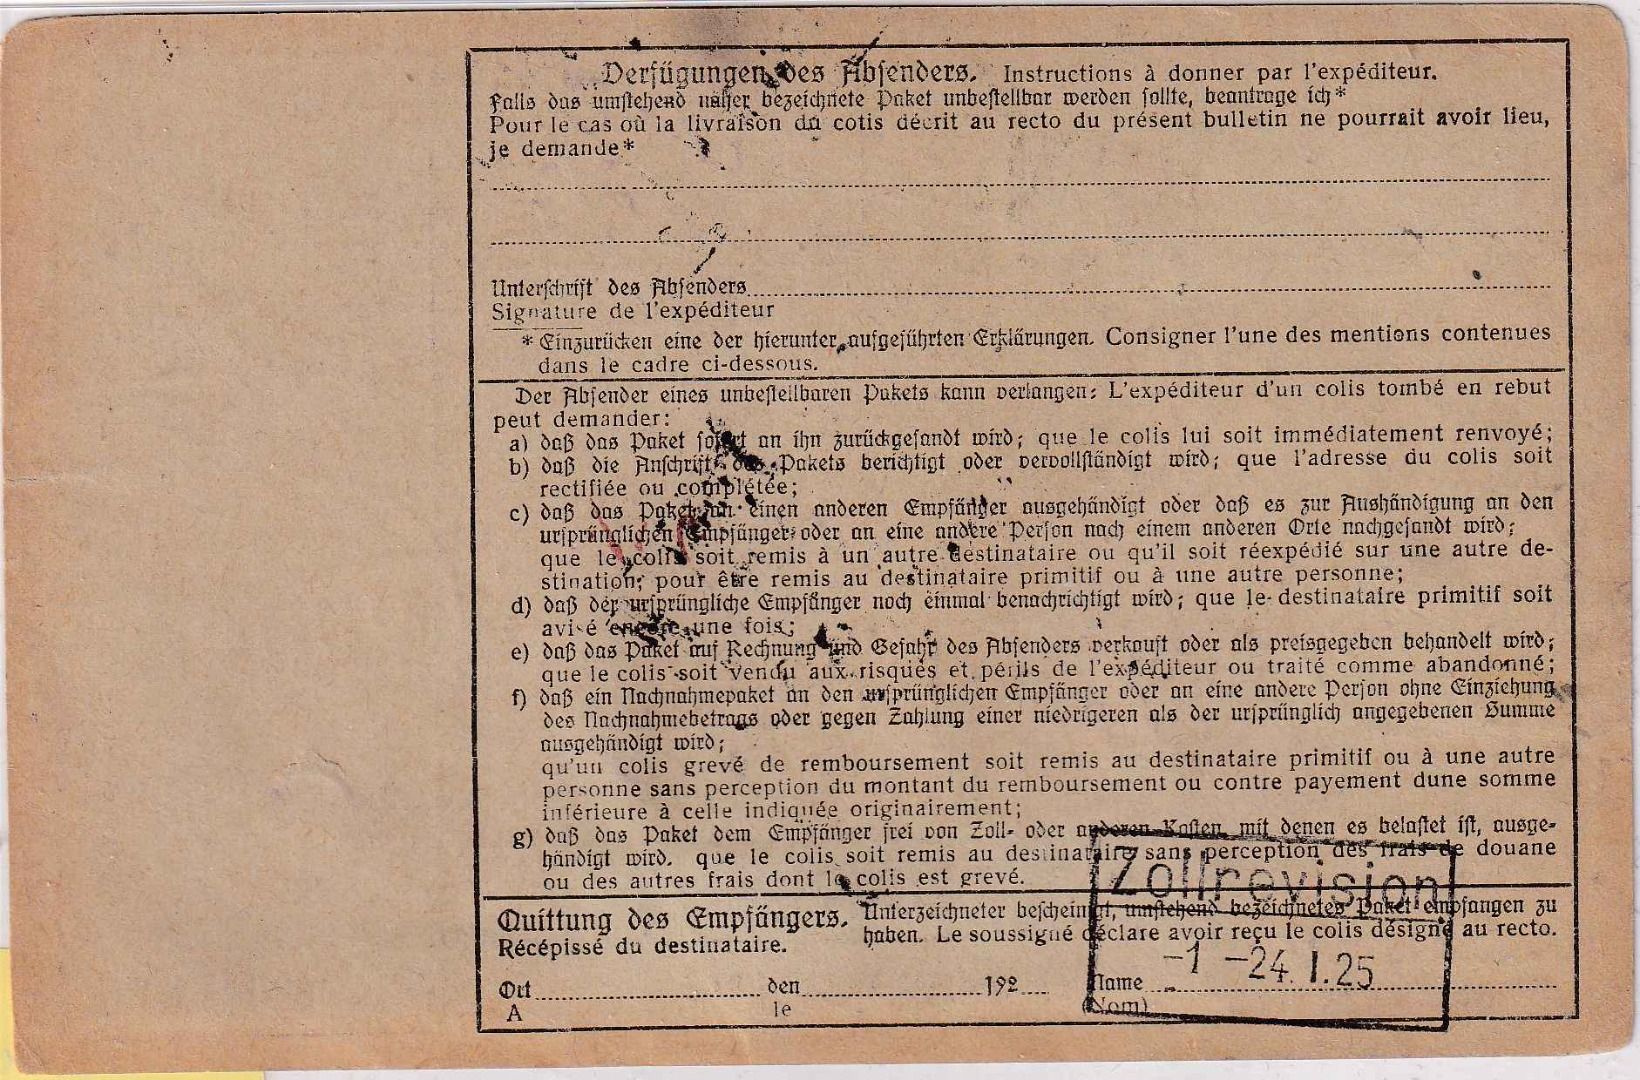 Verfügungen des Absenders. Instructions à donner par l'expéditeur.
Falls das umstehend näher bezeichnete Paket unbestellbar werden sollte, beantrage ich*
Pour le cas où la livraison du cotis décrit au recto du présent bulletin ne pourrait avoir lieu,
je demande*
Unterschrift des Absenders
Signature de l'expéditeur
* Einzurücken eine der hierunter aufgeführten Erklärungen. Consigner l'une des mentions contenues
dans le cadre ci-dessous.
Der Absender eines unbestellbaren Pakets kann verlangen: L'expéditeur d'un colis tombé en rebut
peut demander:
a) daß das Paket sofort an ihn zurückgesandt wird; que le colis lui soit immédiatement renvoyé;
b) daß die Anschrift des Pakets berichtigt oder vervollständigt wird; que l'adresse du colis soit
rectifiée ou complétée;
c) daß das Paket an einen anderen Empfänger ausgehändigt oder daß es zur Aushändigung an den
ursprünglichen Empfänger oder an eine andere Person nach einem anderen Orte nachgesandt wird;
que le colis soit remis à un autre destinataire ou qu'il soit réexpédié sur une autre de-
stination; pour être remis au destinataire primitif ou à une autre personne;
d) daß der ursprüngliche Empfänger noch einmal benachrichtigt wird; que le destinataire primitif soit
avisé encore une fois;
e) daß das Paket auf Rechnung und Gefahr des Absenders verkauft oder als preisgegeben behandelt wird;
que le colis soit vendu aux risques et périls de l'expéditeur ou traité comme abandonné;
f) daß ein Nachnahmepaket an den ursprünglichen Empfänger oder an eine andere Person ohne Einziehung
des Nachnahmebetrags oder gegen Zahlung einer niedrigeren als der ursprünglich angegebenen Summe
ausgehändigt wird;
qu'un colis grevé de remboursement soit remis au destinataire primitif ou à une autre
personne sans perception du montant du remboursement ou contre payement dune somme
inférieure à celle indiquée originairement;
g) daß das Paket dem Empfänger frei von Zoll- oder anderen Kosten mit denen es belastet ist, ausge-
händigt wird. que le colis soit remis au destinataire sans perception des frais de douane
ou des autres frais dont le colis est grevé.
Zollrevision
Quittung des Empfängers. Unterzeichneter bescheinigt, umstehend bezeichnetes Paket empfangen zu
Récépissé du destinataire. haben. Le soussigné déclare avoir reçu le colis désigné au recto.
-1 -24. 1. 25
Ort den 192 Name
A le (Nom)